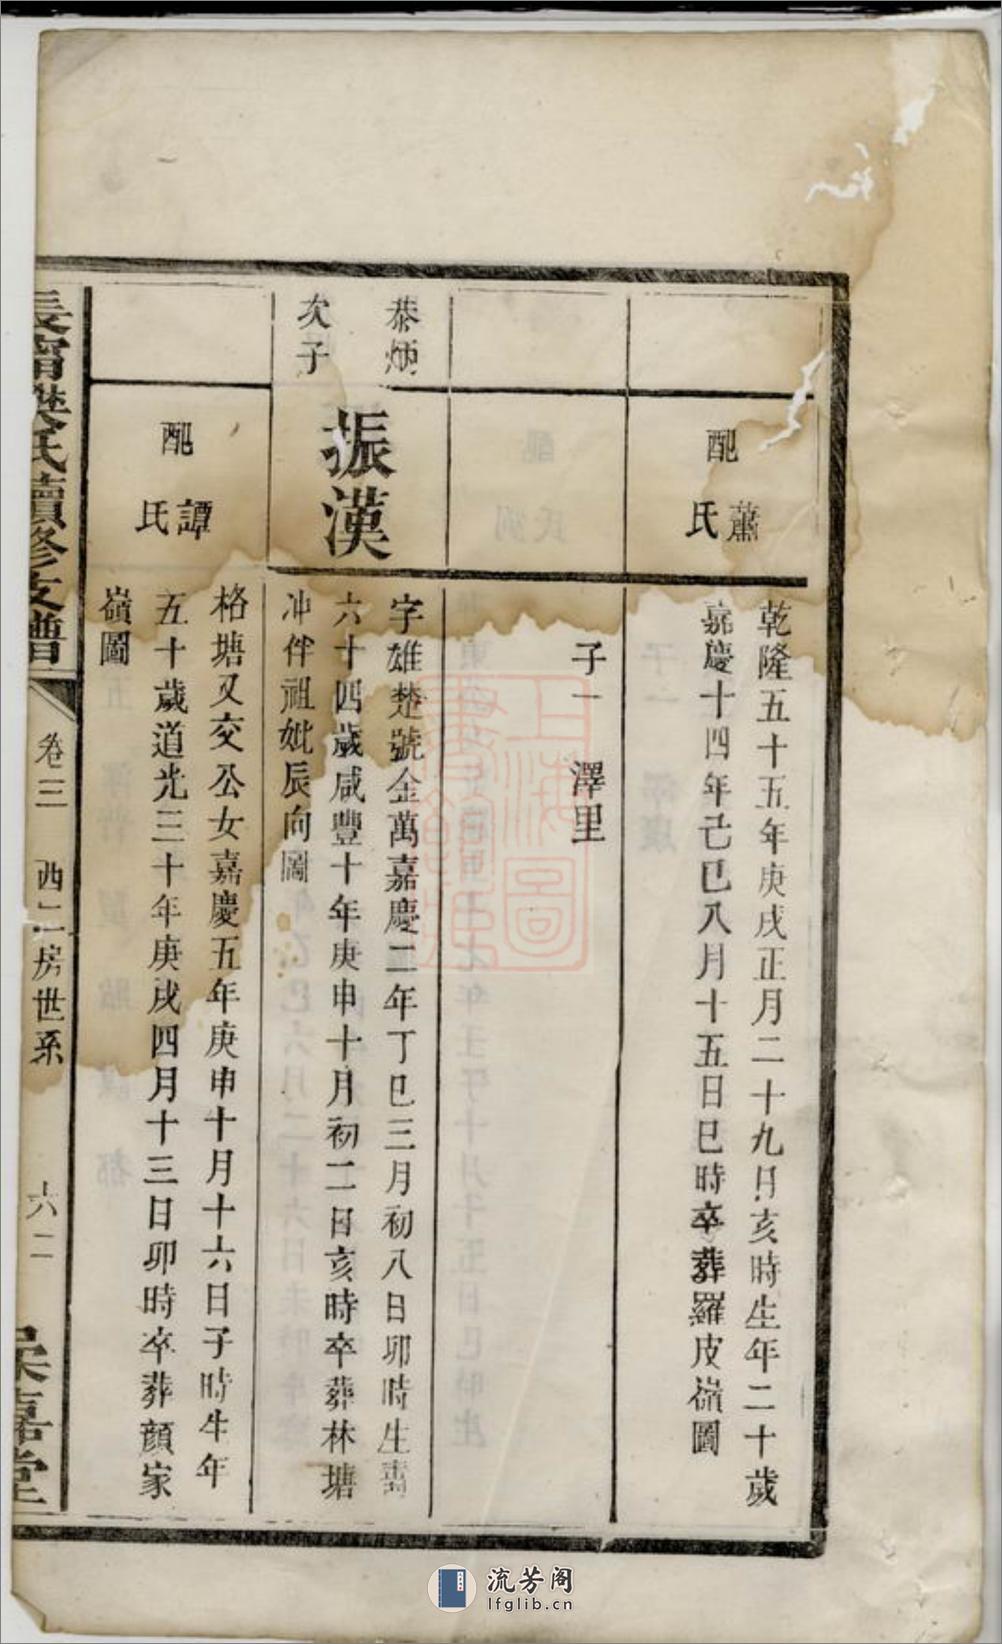 配蕭氏
乾隆五十五年庚戌正月二十九日亥時生年二十歲
嘉慶十四年己巳八月十五日巳時卒葬羅皮嶺圖
子一 澤里
恭炳
次子
振漢
字雄楚號金萬嘉慶二年丁巳三月初八日卯時生壽
六十四歲咸豐十年庚申十月初二日亥時卒葬林塘
冲伴祖妣辰向圖
配譚氏
格塘又交公女嘉慶五年庚申十月十六日子時生年
五十歲道光三十年庚戌四月十三日卯時卒葬顏家
嶺圖
氏續修支譜
卷三
西二房世系
六二
嘉堂
上海圖書館藏
流芳阁
lfglib.cn